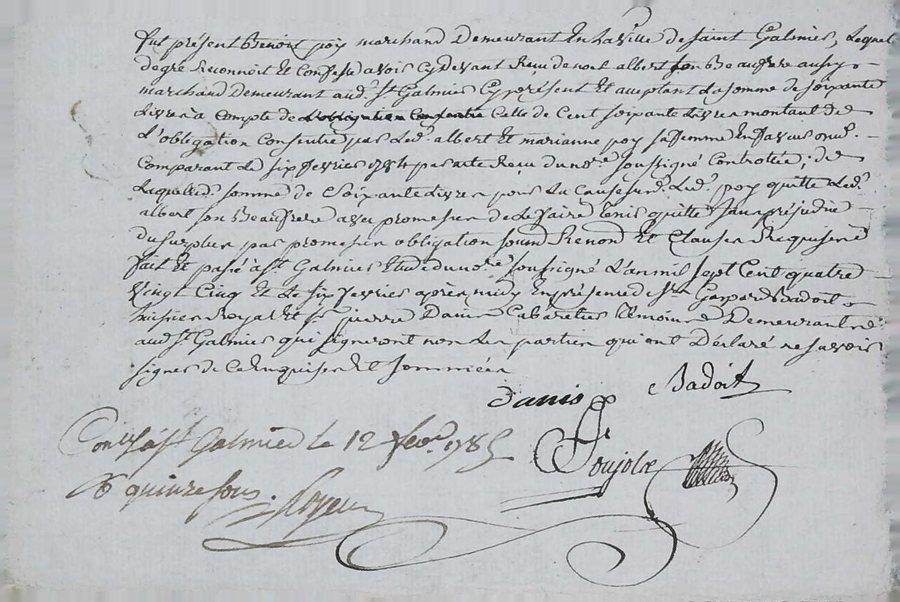 fut présent Benoit poy marchand Demeurant En La ville de Saint Galmier, Lequel
de gré Reconnoit Et Confesse avoir Cy devant Reçu de noel albert son Beaufrere aussy
marchand Demeurant aud. St Galmier Cy présent Et aceptant La somme de soixante
Livres à Compte de L'obligation Consentie Celle de Cent soixante Livres montant de
L'obligation Consentie par Led. albert et marianne poy sa femme En faveur dud.
Comparant Le six fevrier 1784 par acte Reçu du nore soussigné Controllée; de
Laquelle d. somme de soixante Livres pour La Cause susd. Led. poy quitte Led.
albert son Beaufrere avec promesse de Le faire tenir quitte sans préjudice
du surplus par promesse obligation soum Renond Et Clauses Requises
fait Et passé à St Galmier Etude du nore soussigné L'an mil sept Cent quatre
Vingt Cinq Et Le six fevrier après midy En présence de Sr Gaspard Badoit
huissier Royal Et Sr pierre Danis Cabaretier témoins Demeurant
aud. St Galmier qui signeront non Les parties qui ont Déclaré ne savoir
signer de Ce Enquises Et sommées
Danis Badoit
Poujolre
Con. à St Galmier le 12 fevr. 1785
quinze sous. Royeu